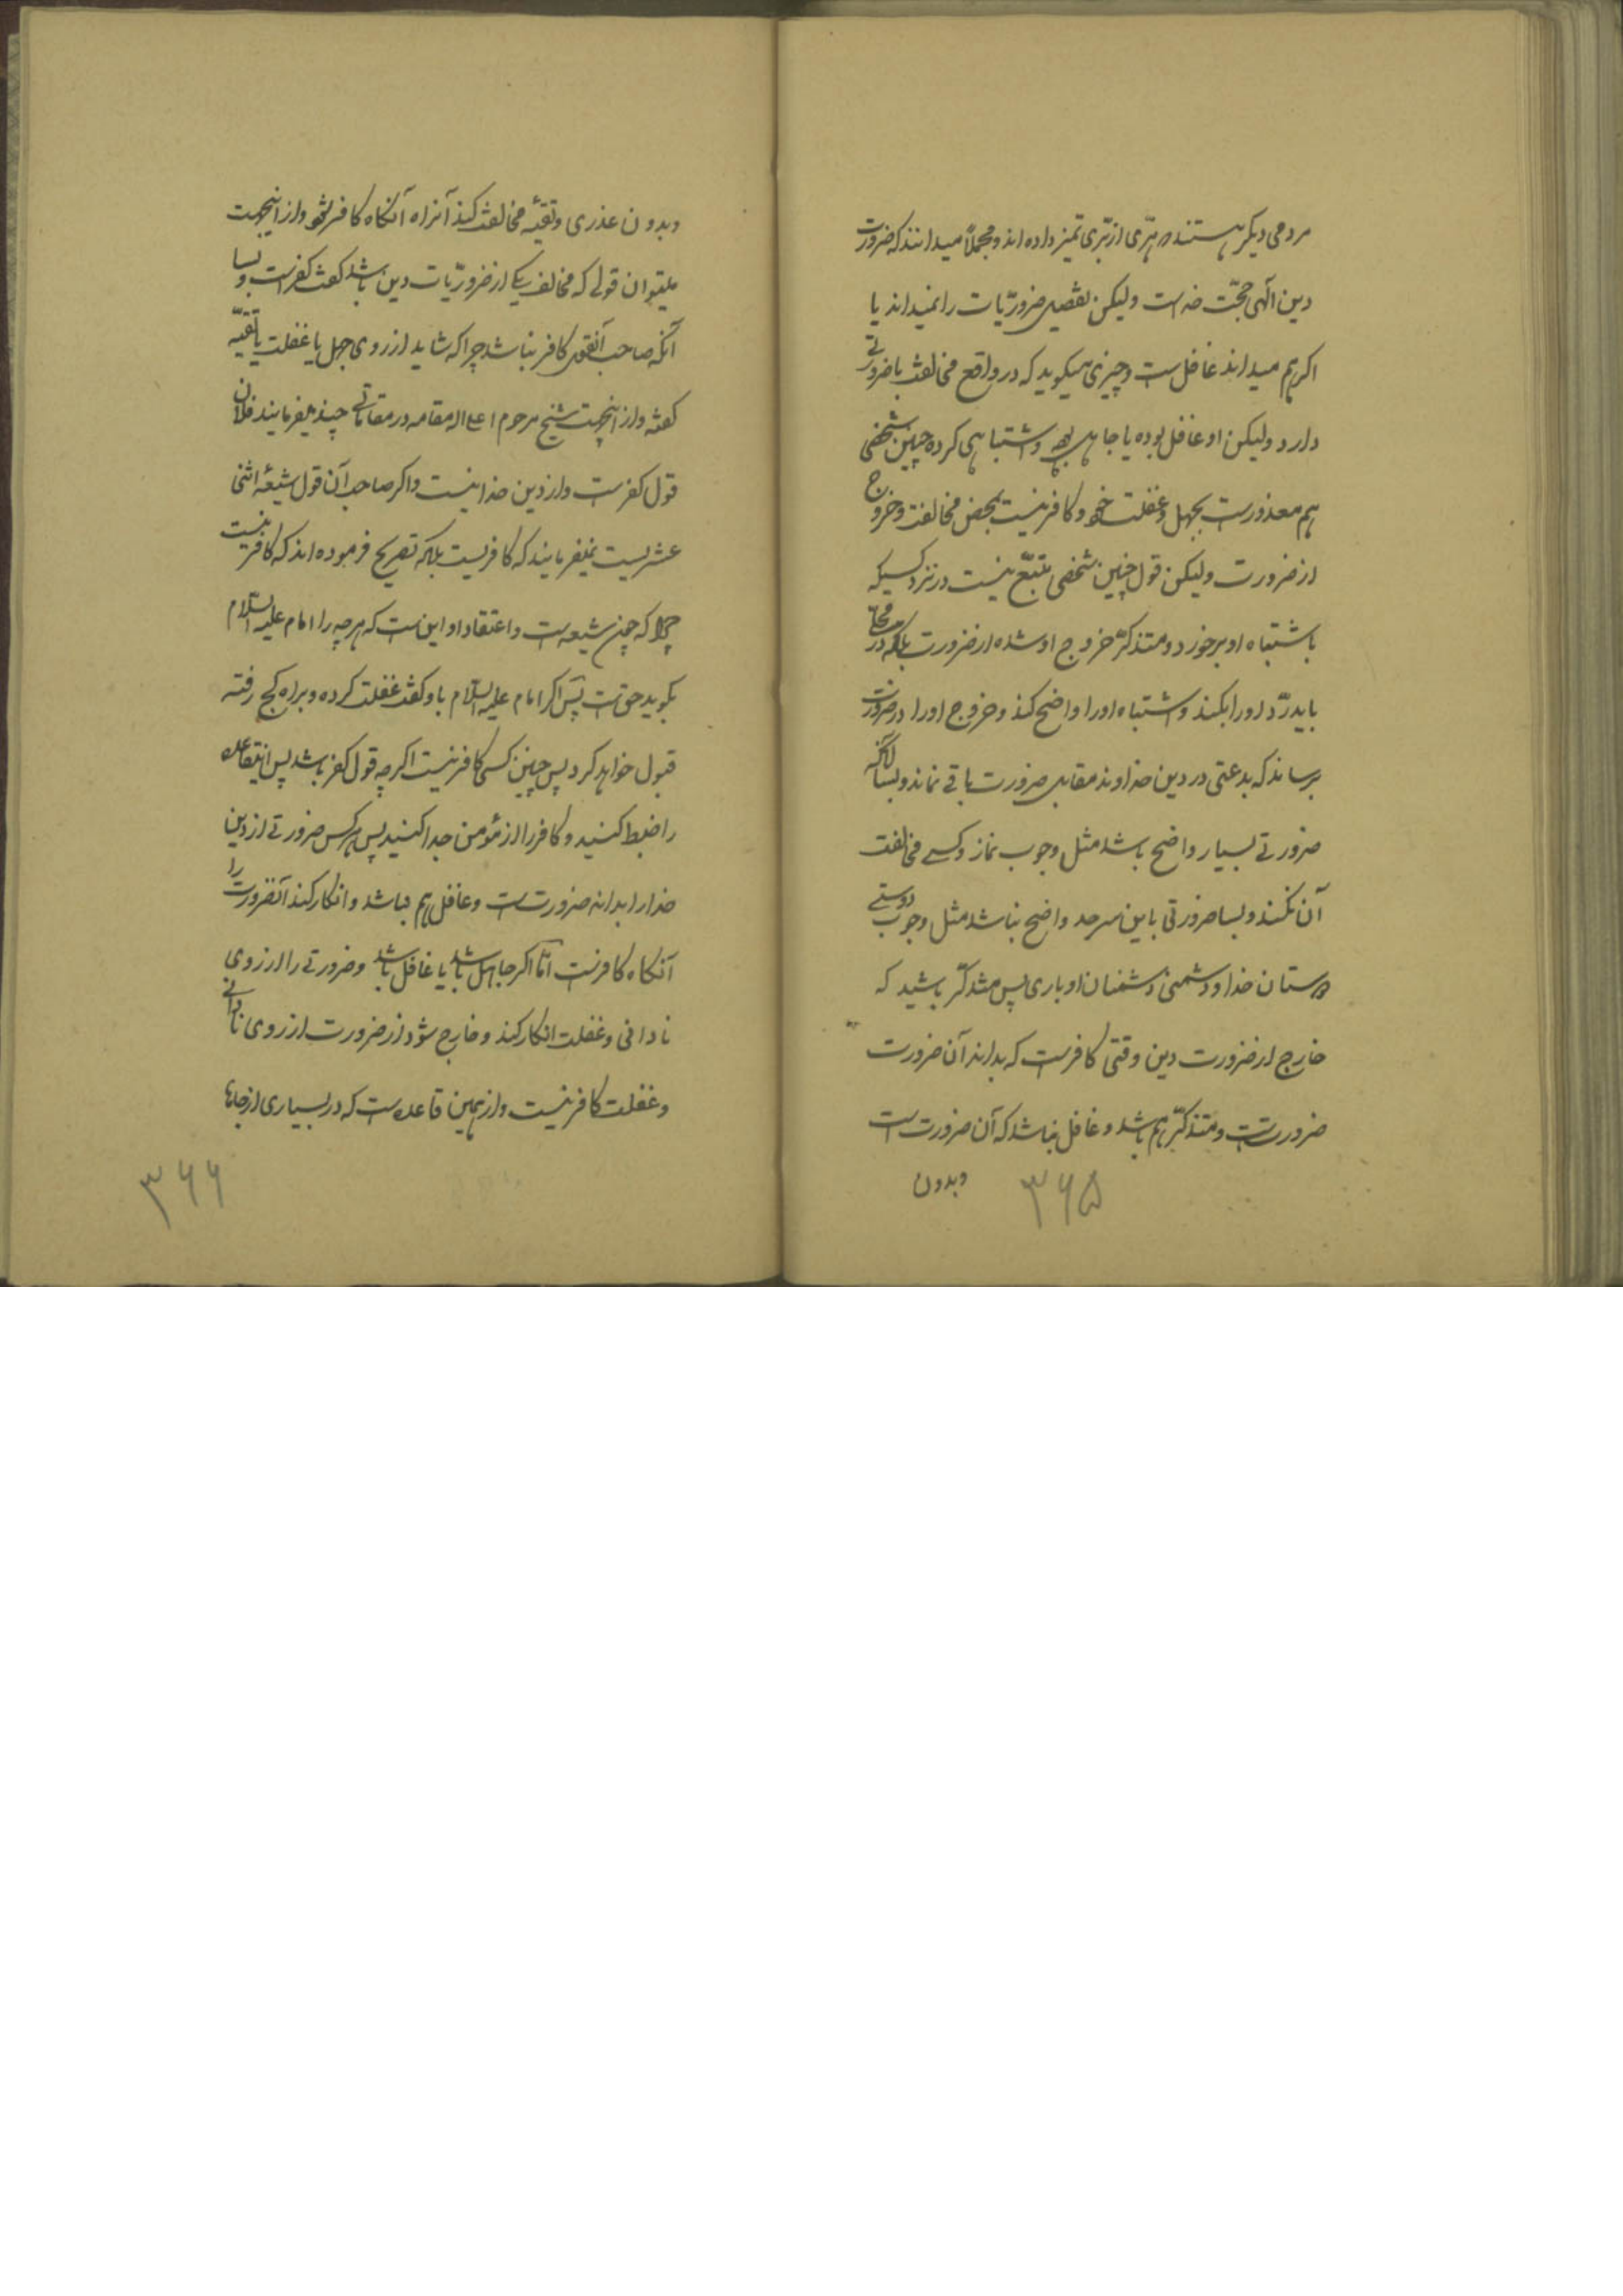 مردمی دیگر هستند هرّی از برّی تمیز داده‌اند و مجملاً میدانند که ضرورت
دین الهی حجّت خداست ولیکن تفصیل ضروریّات را نمیداند یا
اگر هم میداند غافلست و چیزی میگوید که در واقع مخالفت با ضرورتی
دارد ولیکن او غافل بوده یا جاهل بوده و اشتباهی کرده چنین شخصی
هم معذورست بجهل و غفلت خود و کافر نیست بمحض مخالفت و خروج
از ضرورت ولیکن قول چنین شخصی متّبع نیست در نزد کسیکه
باشتباه او برخورد و متذکّر خروج او شده از ضرورت بلکه در
باید ردّ او را بکند و اشتباه او را واضح کند و خروج او را در ضرورت
برساند که بدعتی در دین خداوند مقابل ضرورت باقی نماند و بسا آنکه
ضرورتی بسیار واضح باشد مثل وجوب نماز و کسی مخالفت
آن نکند و بسا ضرورتی باین سرحد واضح نباشد مثل وجوب دوستی
دوستان خدا و دشمنی دشمنان او باری پس متذکّر باشید که
خارج از ضرورت دین وقتی کافرست که بداند آن ضرورت
ضرورتست و متذکّر هم باشد و غافل نباشد که آن ضرورت است
وبدون
۳۶۵
وبدون عذری و تقیّه مخالفت کند آنرا آنگاه کافر شود و از اینجهت
میتوان قولی که مخالف یکی از ضروریّات دین باشد گفت کفر است و بسا
آنکه صاحب آنقول کافر نباشد چرا که شاید از روی جهل یا غفلت یا تقیّه
گفته و از اینجهت شیخ مرحوم اعلی الله مقامه در مقاماتی چند میفرمایند فلان
قول کفرست و از دین خدا نیست و اگر صاحب آن قول شیعهٔ اثنی
عشریست نمیفرمایند که کافریست بلکه تصریح فرموده‌اند که کافر نیست
چرا که چون شیعه است و اعتقاد او این است که هرچه را امام علیه السّلام
بگوید حق است پس اگر امام علیه السّلام باو گفت غفلت کرده و براه کج رفته
قبول خواهد کرد پس چنین کسی کافر نیست اگرچه قول کفر باشد پس اینقاعده
را ضبط کنید و کافر را از مؤمن جدا کنید پس هر کس ضرورتی از دین
خدا را بداند ضرورتست و غافل هم نباشد و انکار کند آنضرورت را
آنگاه کافرست امّا اگر جاهل باشد یا غافل باشد و ضرورتی را از روی
نادانی و غفلت انکار کند و خارج شود از ضرورت از روی نادانی
و غفلت کافر نیست و از همین قاعده است که در بسیاری از جاها
۳۶۶